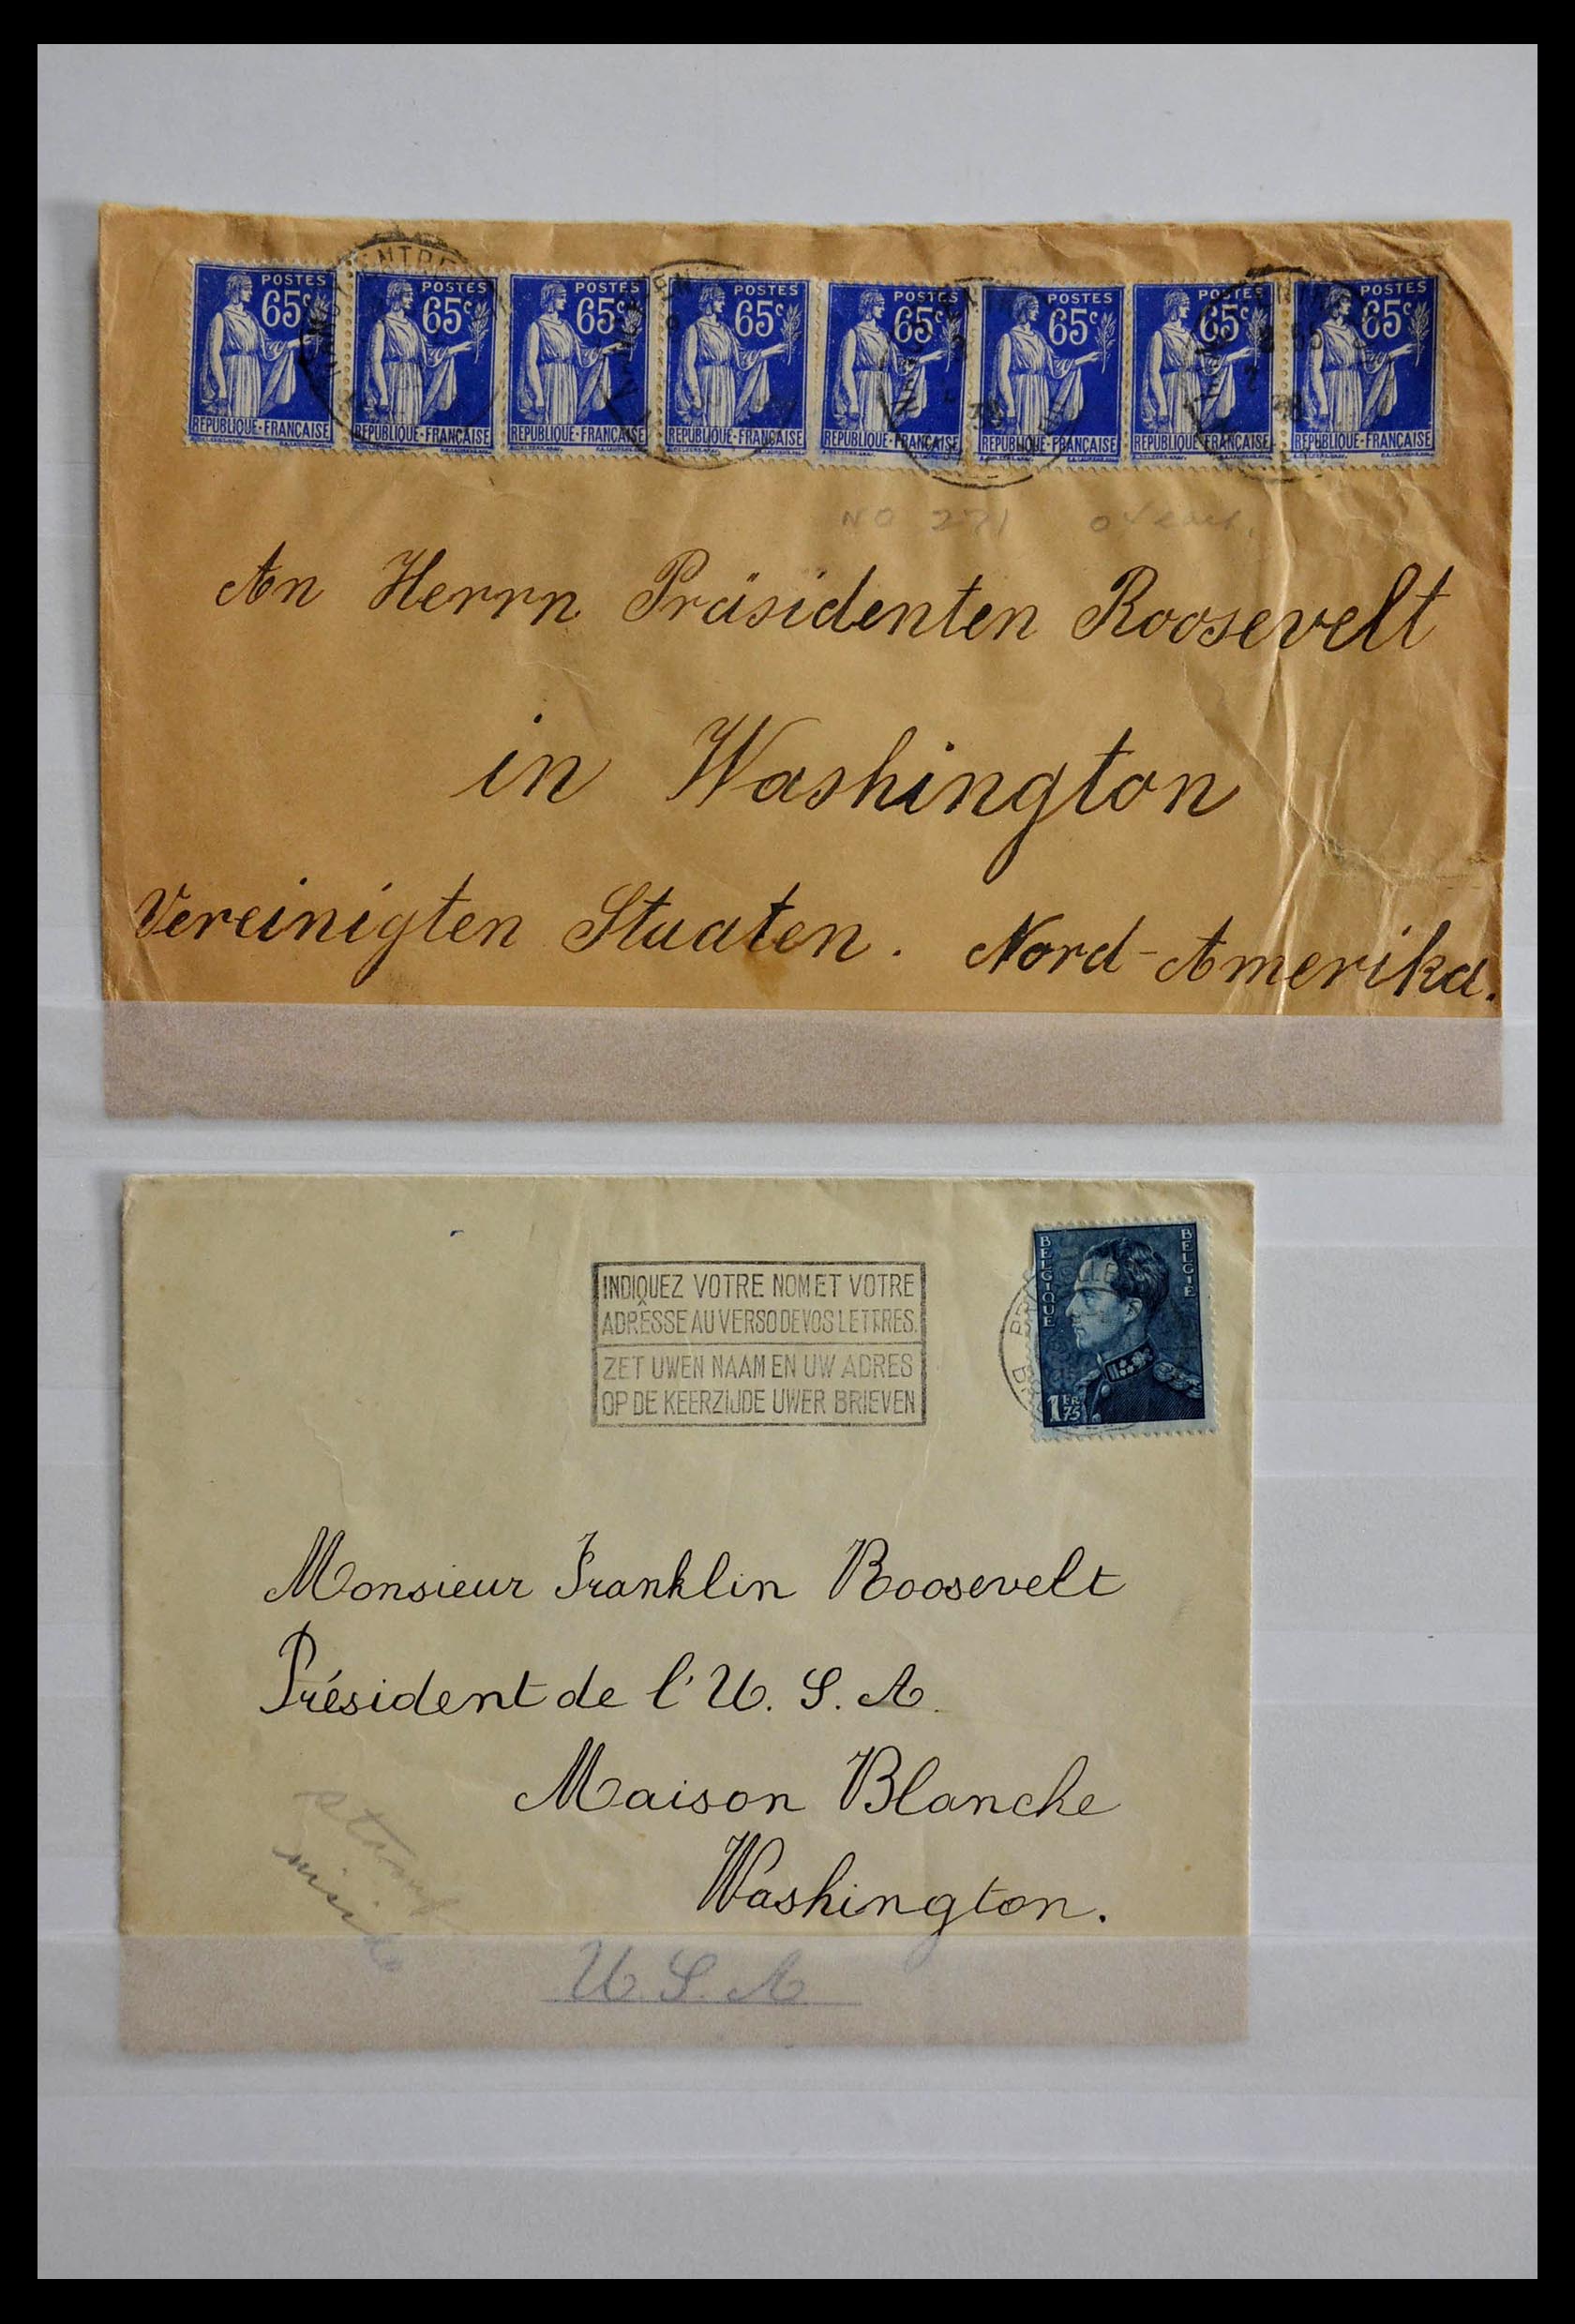 POSTES POSTES POSTES POSTES POSTES POSTES POSTES POSTES
65c 65c 65c 65c 65c 65c 65c 65c
REPUBLIQUE-FRANÇAISE REPUBLIQUE-FRANÇAISE REPUBLIQUE-FRANÇAISE REPUBLIQUE-FRANÇAISE REPUBLIQUE-FRANÇAISE REPUBLIQUE-FRANÇAISE REPUBLIQUE-FRANÇAISE REPUBLIQUE-FRANÇAISE
NO 271
An Herrn Präsidenten Roosevelt
in Washington
Vereinigten Staaten. Nord-Amerika.
BELGIQUE BELGIE
1FR 75
INDIQUEZ VOTRE NOM ET VOTRE
ADRESSE AU VERSO DE VOS LETTRES.
ZET UWEN NAAM EN UW ADRES
OP DE KEERZIJDE UWER BRIEVEN
Monsieur Franklin Roosevelt
Président de l'U. S. A.
Maison Blanche
Washington.
U. S. A